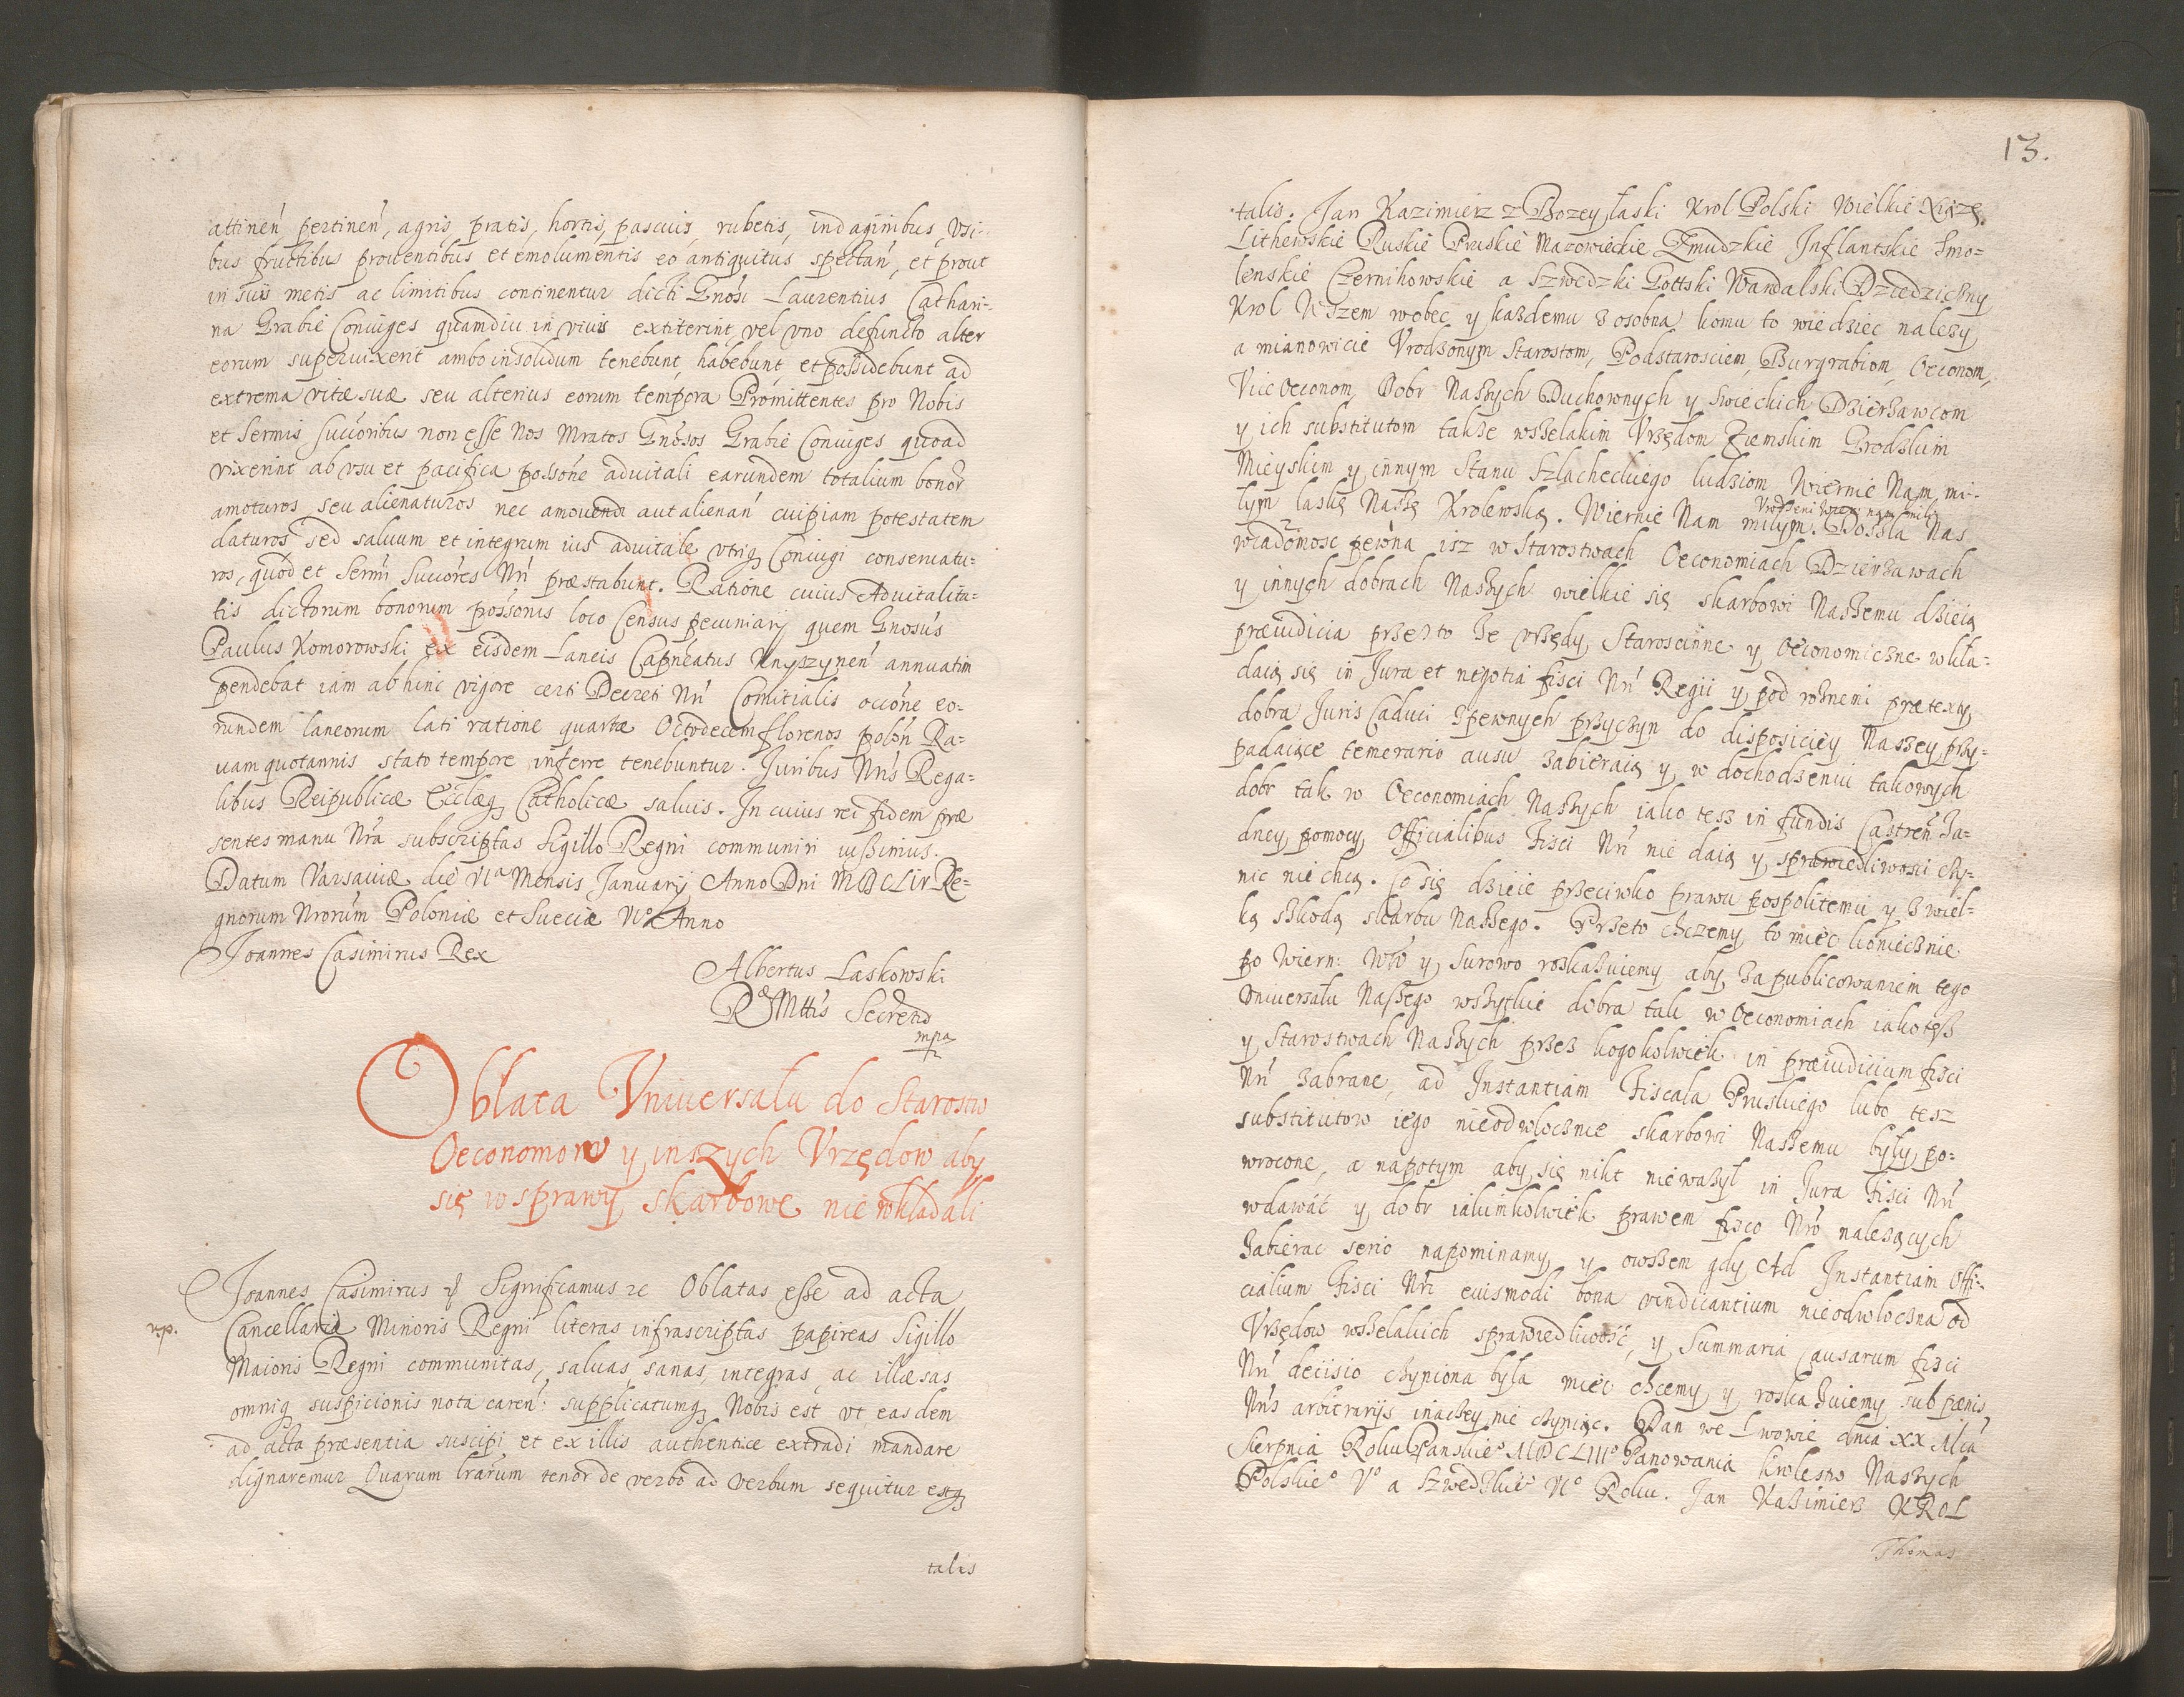 attineń pertineń, agris, pratis, hortis, pascuis, rubetis, indaginibus, Vsi-
bus fructibus prouentibus et emolumentis eo antiquitus spectań, et prout
in suis metis ac limitibus continentur dicti Gnosi Laurentius Cathari-
na Grabie Coniuges quamdiu in viuis extiterint, vel vno defuncto alter
eorum superuixerit ambo insolidum tenebunt, habebunt, et possidebunt ad
extrema vitæ suæ seu alterius eorum tempora Promittentes pro Nobis
et Sermis Succoribus non esse Nos Mratos Gnosos Grabie Coniuges quoad
vixerint ab vsu et pacifica possone aduitali earundem totalium bonor
amoturos, seu alienaturos nec amouendi aut alienań cuipiam potestatem
daturos sed saluum et integrum ius aduitale vtriq Coniugi conseruatu-
ros, quod et Sermi Succores Nri præstabunt. Ratione cuius Aduitalita-
tis dictorum bonorum possonis loco Census pecuniarij quem Gnosus
Paulus Komorowski ex eisdem Laneis Capneatus Knyszyneń annuatim
pendebat iam abhinc vigore certi Decreti Nri Comitialis occone eo-
rundem laneorum lati ratione quartæ Octodecem florenos polon Ra-
uam quotannis stato tempore inferre tenebuntur. Juribus Nris Rega-
libus Reipublicæ Ecclæq Catholicæ saluis. In cuius rei fidem præ
sentes manu Nra subscriptas Sigillo Regni communiri iussimus.
Datum Varsauiæ die VIa Mensis Januarij Anno Dni MDCLIV Re-
gnorum Nrorum Poloniæ et Sueciæ VIo Anno
Joannes Casimirus Rex
Albertus Laskowski
Ræ Mttis Secretr
mpa
Oblata Vniuersału do Starostw
Oeconomow y inszych Vrzędow aby
się w sprawy skarbowe nie wkładali
Joannes Casimirus Significamus Oblatas esse ad acta
Cancellariæ Minoris Regni literas infrascriptas papireas Sigillo
Maioris Regni communitas, saluas, sanas, integras, ac illæsas
omniq suspicionis nota careń: supplicatumq Nobis est vt easdem
ad acta præsentia suscipi et ex illis authentice extradi mandare
dignaremur Quarum lrarum tenor de verbo ad verbum sequitur estq
talis
13.
talis. Jan Kazimierz z Bozey łaski Krol Polski Wielkie Xiązę
Lithewskie Ruskie Pruskie Mazowieckie Zmudzkie Inflantskie Smo-
lenskie Czernihowskie a Szwedzki Gottski Wandalski Dziedziczny
Krol Wszem wobec y kazdemu z osobna komu to wiedziec nalezy
a mianowicie Vrodzonym Starostom, Podstarosciem, Burgrabiom, Oeconom,
Vic Oeconom Dobr Naszych Duchownych y Swieckich Dzierzawcom
y ich substitutom takze wszelakim Vrzędom Ziemskim Grodzkim
Mieyskim y innym Stanu Szlacheckiego ludziom Wiernie Nam mi-
łym laskę Naszę Krolewską. Wiernie Nam milym. Doszła Nas
wiadomosc pewna isz w Starostwach Oeconomiach Dzierzawach
y innych dobrach Naszych wielkie się skarbowi Naszemu dzieią
præiudicia przezto ze vrzędy Staroscinne y Oeconomiczne wkła-
daią się in Jura et negotia fisci Nri Regii y pod roznemi prætexty
dobra Juris Caduci z pewnych przyczyn do disposiciey Naszey przy-
padaiące temerario ausu zabieraią y w dochodzeniu takowych
dobr tak w Oeconomiach Naszych iako tesz in fundis Castreń Za-
dney pomocy Officialibus Fisci Nri nie daią y sprawiedliwosci czy-
nic nie chcą. Co się dzieie przeciwko prawu pospolitemu y z wiel-
ką szkodą skarbu Naszego. Przeto chczemy to miec koniecznie
po Wiern: Ww y Surowo roskazuiemy aby za publicowaniem tego
Vniuersału Naszego wszytkie dobra tak w Oeconomiach iako tesz
y Starostwach Naszych przez kogokolwiek in præiudicium fisci
Nri zabrane, ad Instantiam Fiscala Pruskiego lubo tesz
substitutow iego nieodwłocznie skarbowi Naszemu były po-
wrocone, a napotym aby się nikt niewazył in Jura Fisci Nri
wdawać y dobr iakimkolwiek prawem fisco Nro nalezących
Zabierac serio napominamy y owszem gdy Ad Instantiam Offi-
cialium Fisci Nri euismodi bona vindicantium nieodwłoczna od
Vrzędow wszelakich sprawiedliwość, y Summaria Causarum fisci
Nri decisio czyniona była miéc chcemy y roskazuiemy sub pœnis
Nris arbitrarijs inaczey nie czyniąc. Dan we Lwowie dnia XX Mca
Sierpnia Roku Panskieo MDCLIIIo Panowania Krolestw Naszych
Polskieo Vo a Szwedzkieo VIo Roku. Jan Kazimierz KROL
Thomas